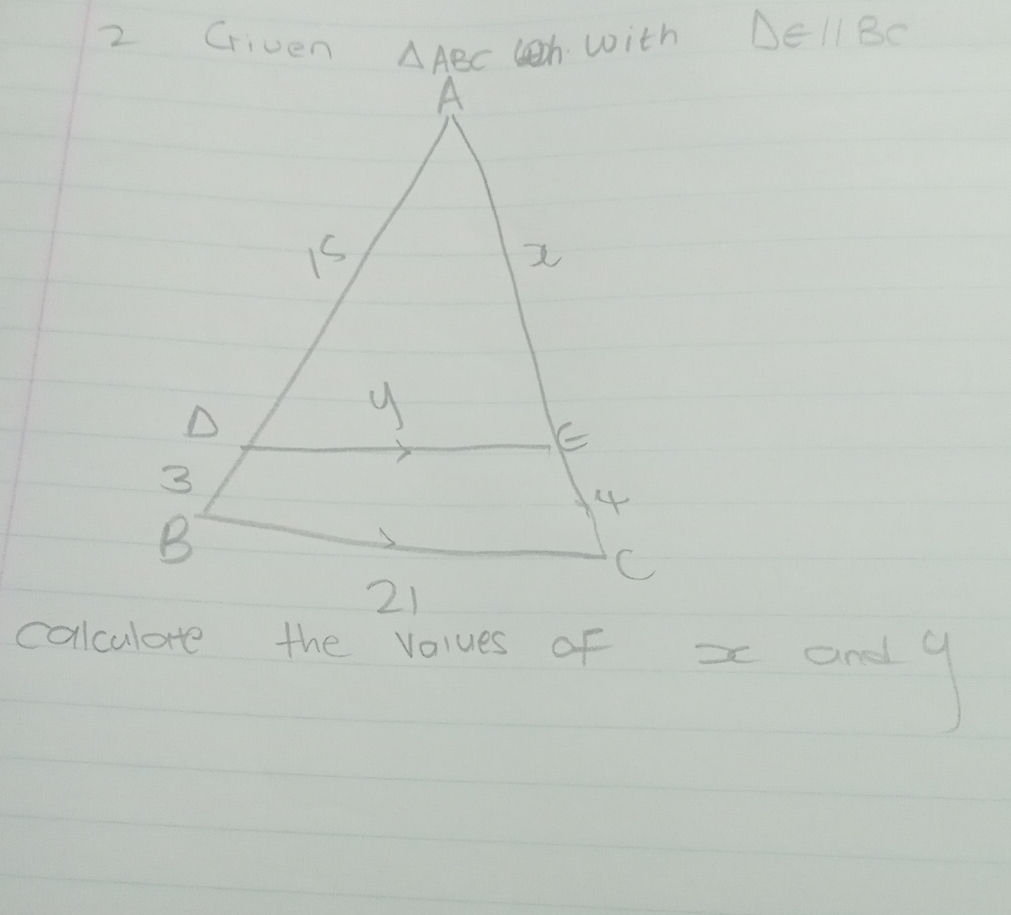 2 Given △ABC with DE//BC
A
15
x
y
D
E
3
4
B
C
21
calculate the values of x and y